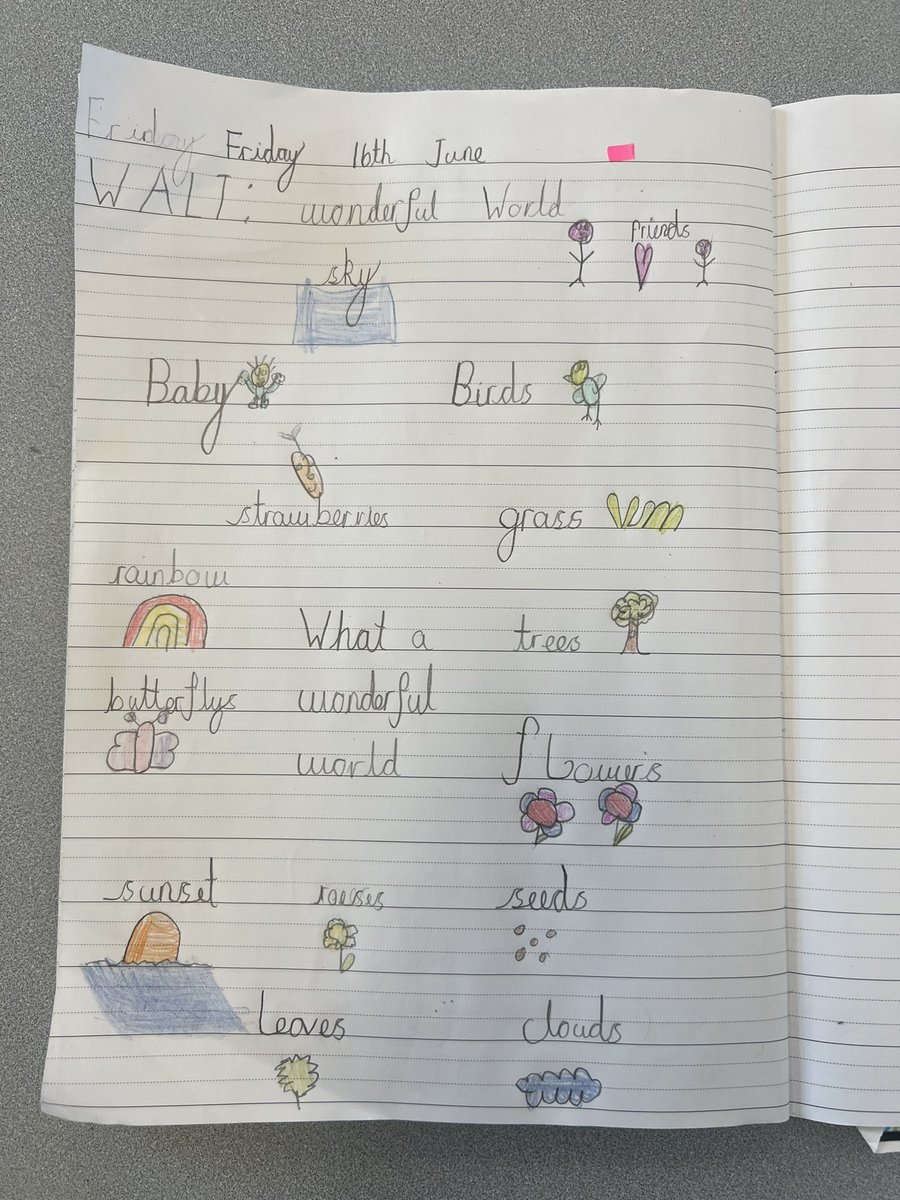 Friday Friday 16th June
WALT: wonderful World
friends
sky
Baby Birds
strawberries grass
rainbow
What a trees
butterflys wonderful
world flowers
sunset roeses seeds
leaves clouds